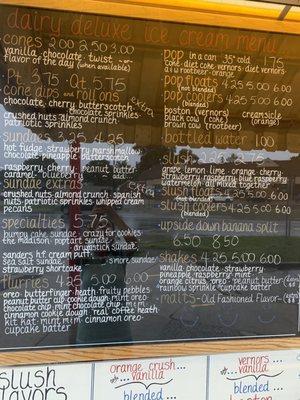 dairy deluxe ice cream menu
cones 2.00 2.50 3.00
vanilla chocolate twist
flavor of the day (when available)
Pt. 3.75 Qt.
cone dips and roll ons extra
chocolate, cherry, butterscotch
chocolate sprinkles
crushed nuts, almond crunch
patriotic sprinkles
sundaes 4.25
hot fudge, strawberry, marshmallow
chocolate, pineapple
raspberry, cherry, peanut butter
caramel
sundae extras
crushed nuts, almond crunch, spanish
nuts, patriotic sprinkles, whipped cream
pecans
specialties 5.75
bumpy cake sundae crazy for cookies
the madison, poptart sundae
grumpstick sundae
sanders h.f. cream
sea salt sundae snore sundae
strawberry shortcake
flurries 4.25 5.00 6.25
oreo butterfinger heath fruity pebbles
peanut butter cup cookie dough mint oreo
chocolate chip mint chocolate chip m+m
cinnamon cookie dough real coffee heath
kit kat mint m+m cinnamon oreo
cupcake batter
pop in a can 35¢ cold
coke diet coke vernors diet vernors
a+w rootbeer orange
pop floats 4.25 5.00 6.25
(not blended)
pop coolers 4.25 5.00 6.25
(blended)
boston (vernors) creamsicle
black cow (coke) (orange)
brown cow (rootbeer)
bottled water 1.00
slush
grape lemon lime orange cherry
strawberry raspberry blue raspberry
watermelon (all mixed together)
slush floats 4.25 5.00 6.25
(not blended)
slush coolers 4.25 5.00 6.25
(blended)
upside down banana split
6.50 8.50
shakes 4.25 5.00 6.25
vanilla chocolate strawberry
pineapple raspberry mint
orange citrus oreo peanut butter
rainbow sprinkle cupcake batter
malts Old Fashioned Flavor
slush
flavors
orange crush...
... vanilla
blended ...
vernors...
... vanilla
blended ...